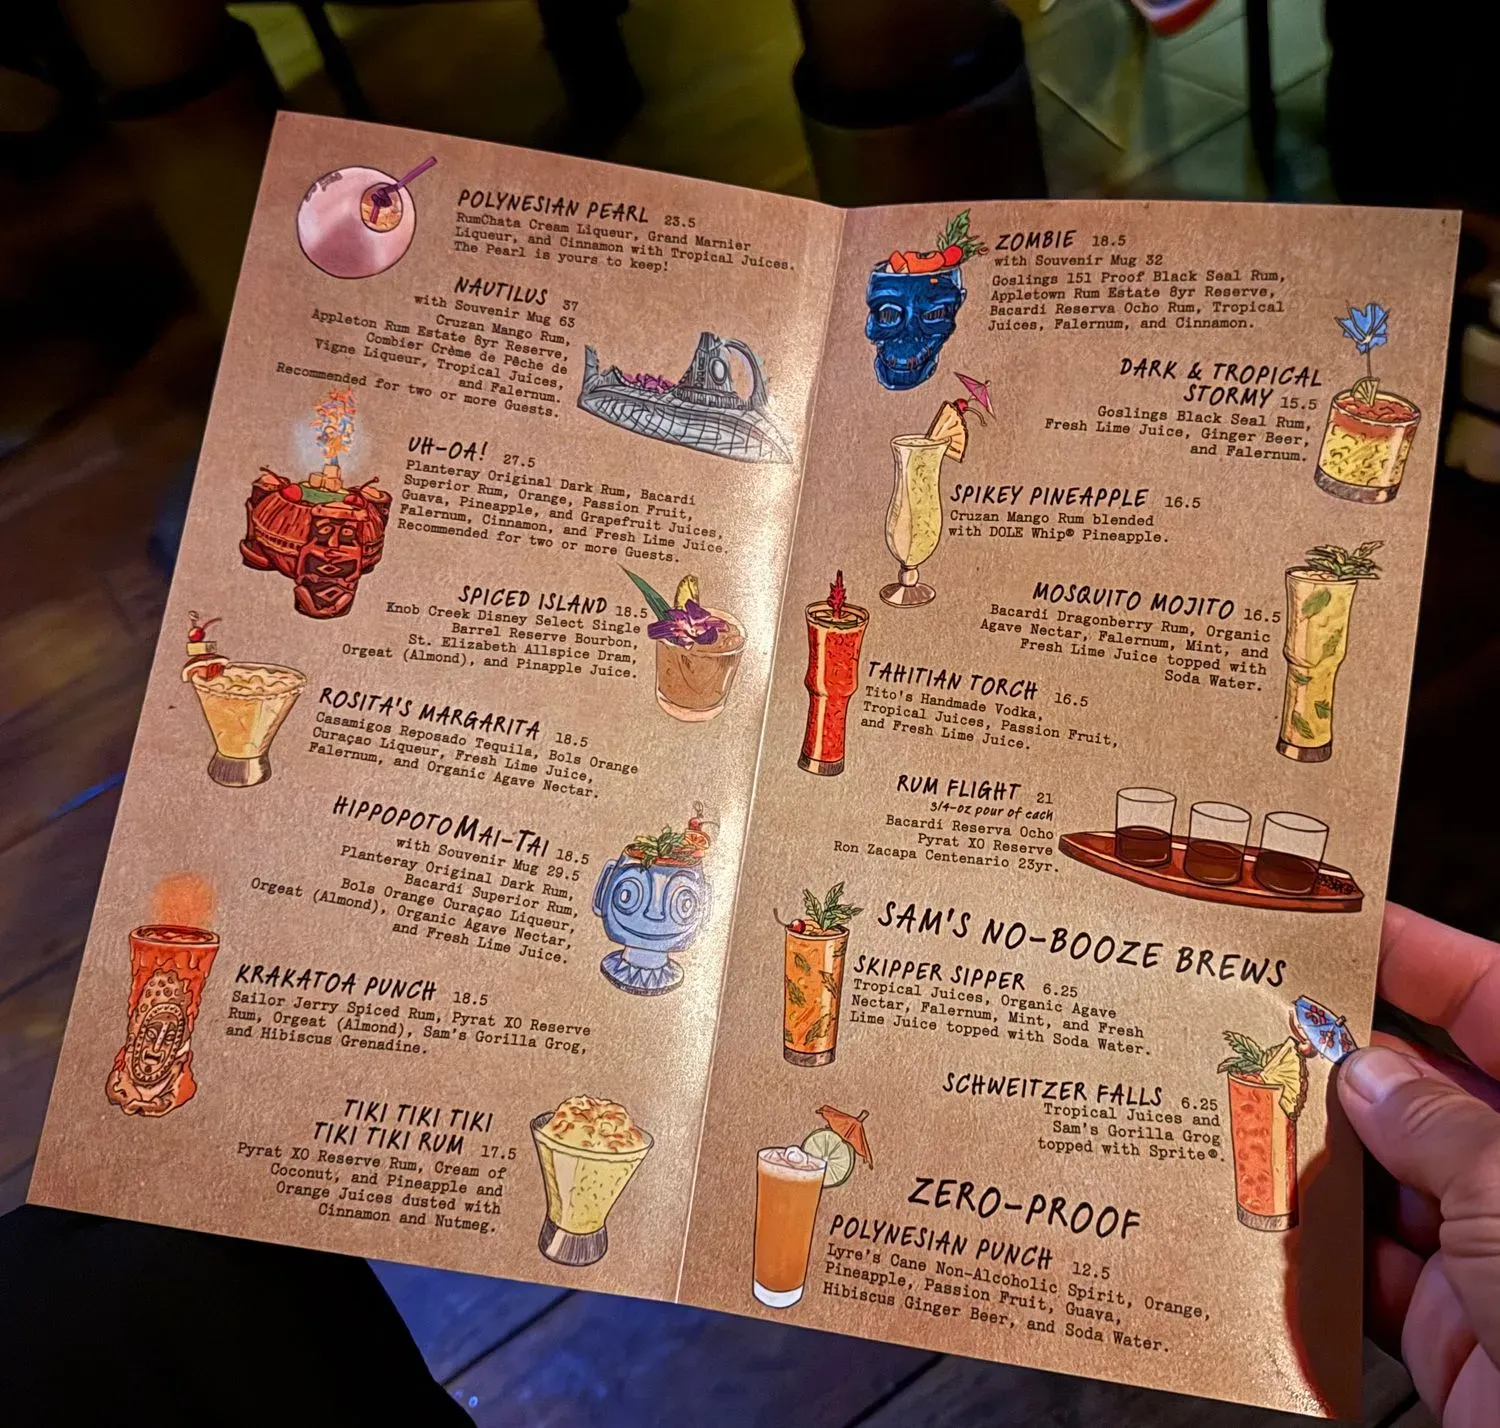 POLYNESIAN PEARL 23.5
RumChata Cream Liqueur, Grand Marnier
Liqueur, and Cinnamon with Tropical Juices.
The Pearl is yours to keep!
NAUTILUS 37
with Souvenir Mug 63
Cruzan Mango Rum,
Appleton Rum Estate 8yr Reserve,
Combier Crème de Pêche de
Vigne Liqueur, Tropical Juices,
and Falernum.
Recommended for two or more Guests.
UH-OA! 27.5
Planteray Original Dark Rum, Bacardi
Superior Rum, Orange, Passion Fruit,
Guava, Pineapple, and Grapefruit Juices,
Falernum, Cinnamon, and Fresh Lime Juice.
Recommended for two or more Guests.
SPICED ISLAND 18.5
Knob Creek Disney Select Single
Barrel Reserve Bourbon,
St. Elizabeth Allspice Dram,
Orgeat (Almond), and Pinapple Juice.
ROSITA'S MARGARITA 18.5
Casamigos Reposado Tequila, Bols Orange
Curaçao Liqueur, Fresh Lime Juice,
Falernum, and Organic Agave Nectar.
HIPPOPOTOMAI-TAI 18.5
with Souvenir Mug 29.5
Planteray Original Dark Rum,
Bacardi Superior Rum,
Bols Orange Curaçao Liqueur,
Orgeat (Almond), Organic Agave Nectar,
and Fresh Lime Juice.
KRAKATOA PUNCH 18.5
Sailor Jerry Spiced Rum, Pyrat XO Reserve
Rum, Orgeat (Almond), Sam's Gorilla Grog,
and Hibiscus Grenadine.
TIKI TIKI TIKI
TIKI TIKI RUM 17.5
Pyrat XO Reserve Rum, Cream of
Coconut, and Pineapple and
Orange Juices dusted with
Cinnamon and Nutmeg.
ZOMBIE 18.5
with Souvenir Mug 32
Goslings 151 Proof Black Seal Rum,
Appletown Rum Estate 8yr Reserve,
Bacardi Reserva Ocho Rum, Tropical
Juices, Falernum, and Cinnamon.
DARK & TROPICAL
STORMY 15.5
Goslings Black Seal Rum,
Fresh Lime Juice, Ginger Beer,
and Falernum.
SPIKEY PINEAPPLE 16.5
Cruzan Mango Rum blended
with DOLE Whip® Pineapple.
MOSQUITO MOJITO 16.5
Bacardi Dragonberry Rum, Organic
Agave Nectar, Falernum, Mint, and
Fresh Lime Juice topped with
Soda Water.
TAHITIAN TORCH 16.5
Tito's Handmade Vodka,
Tropical Juices, Passion Fruit,
and Fresh Lime Juice.
RUM FLIGHT 21
3/4-oz pour of each
Bacardi Reserva Ocho
Pyrat XO Reserve
Ron Zacapa Centenario 23yr.
SAM'S NO-BOOZE BREWS
SKIPPER SIPPER 6.25
Tropical Juices, Organic Agave
Nectar, Falernum, Mint, and Fresh
Lime Juice topped with Soda Water.
SCHWEITZER FALLS 6.25
Tropical Juices and
Sam's Gorilla Grog
topped with Sprite®.
ZERO-PROOF
POLYNESIAN PUNCH 12.5
Lyre's Cane Non-Alcoholic Spirit, Orange,
Pineapple, Passion Fruit, Guava,
Hibiscus Ginger Beer, and Soda Water.